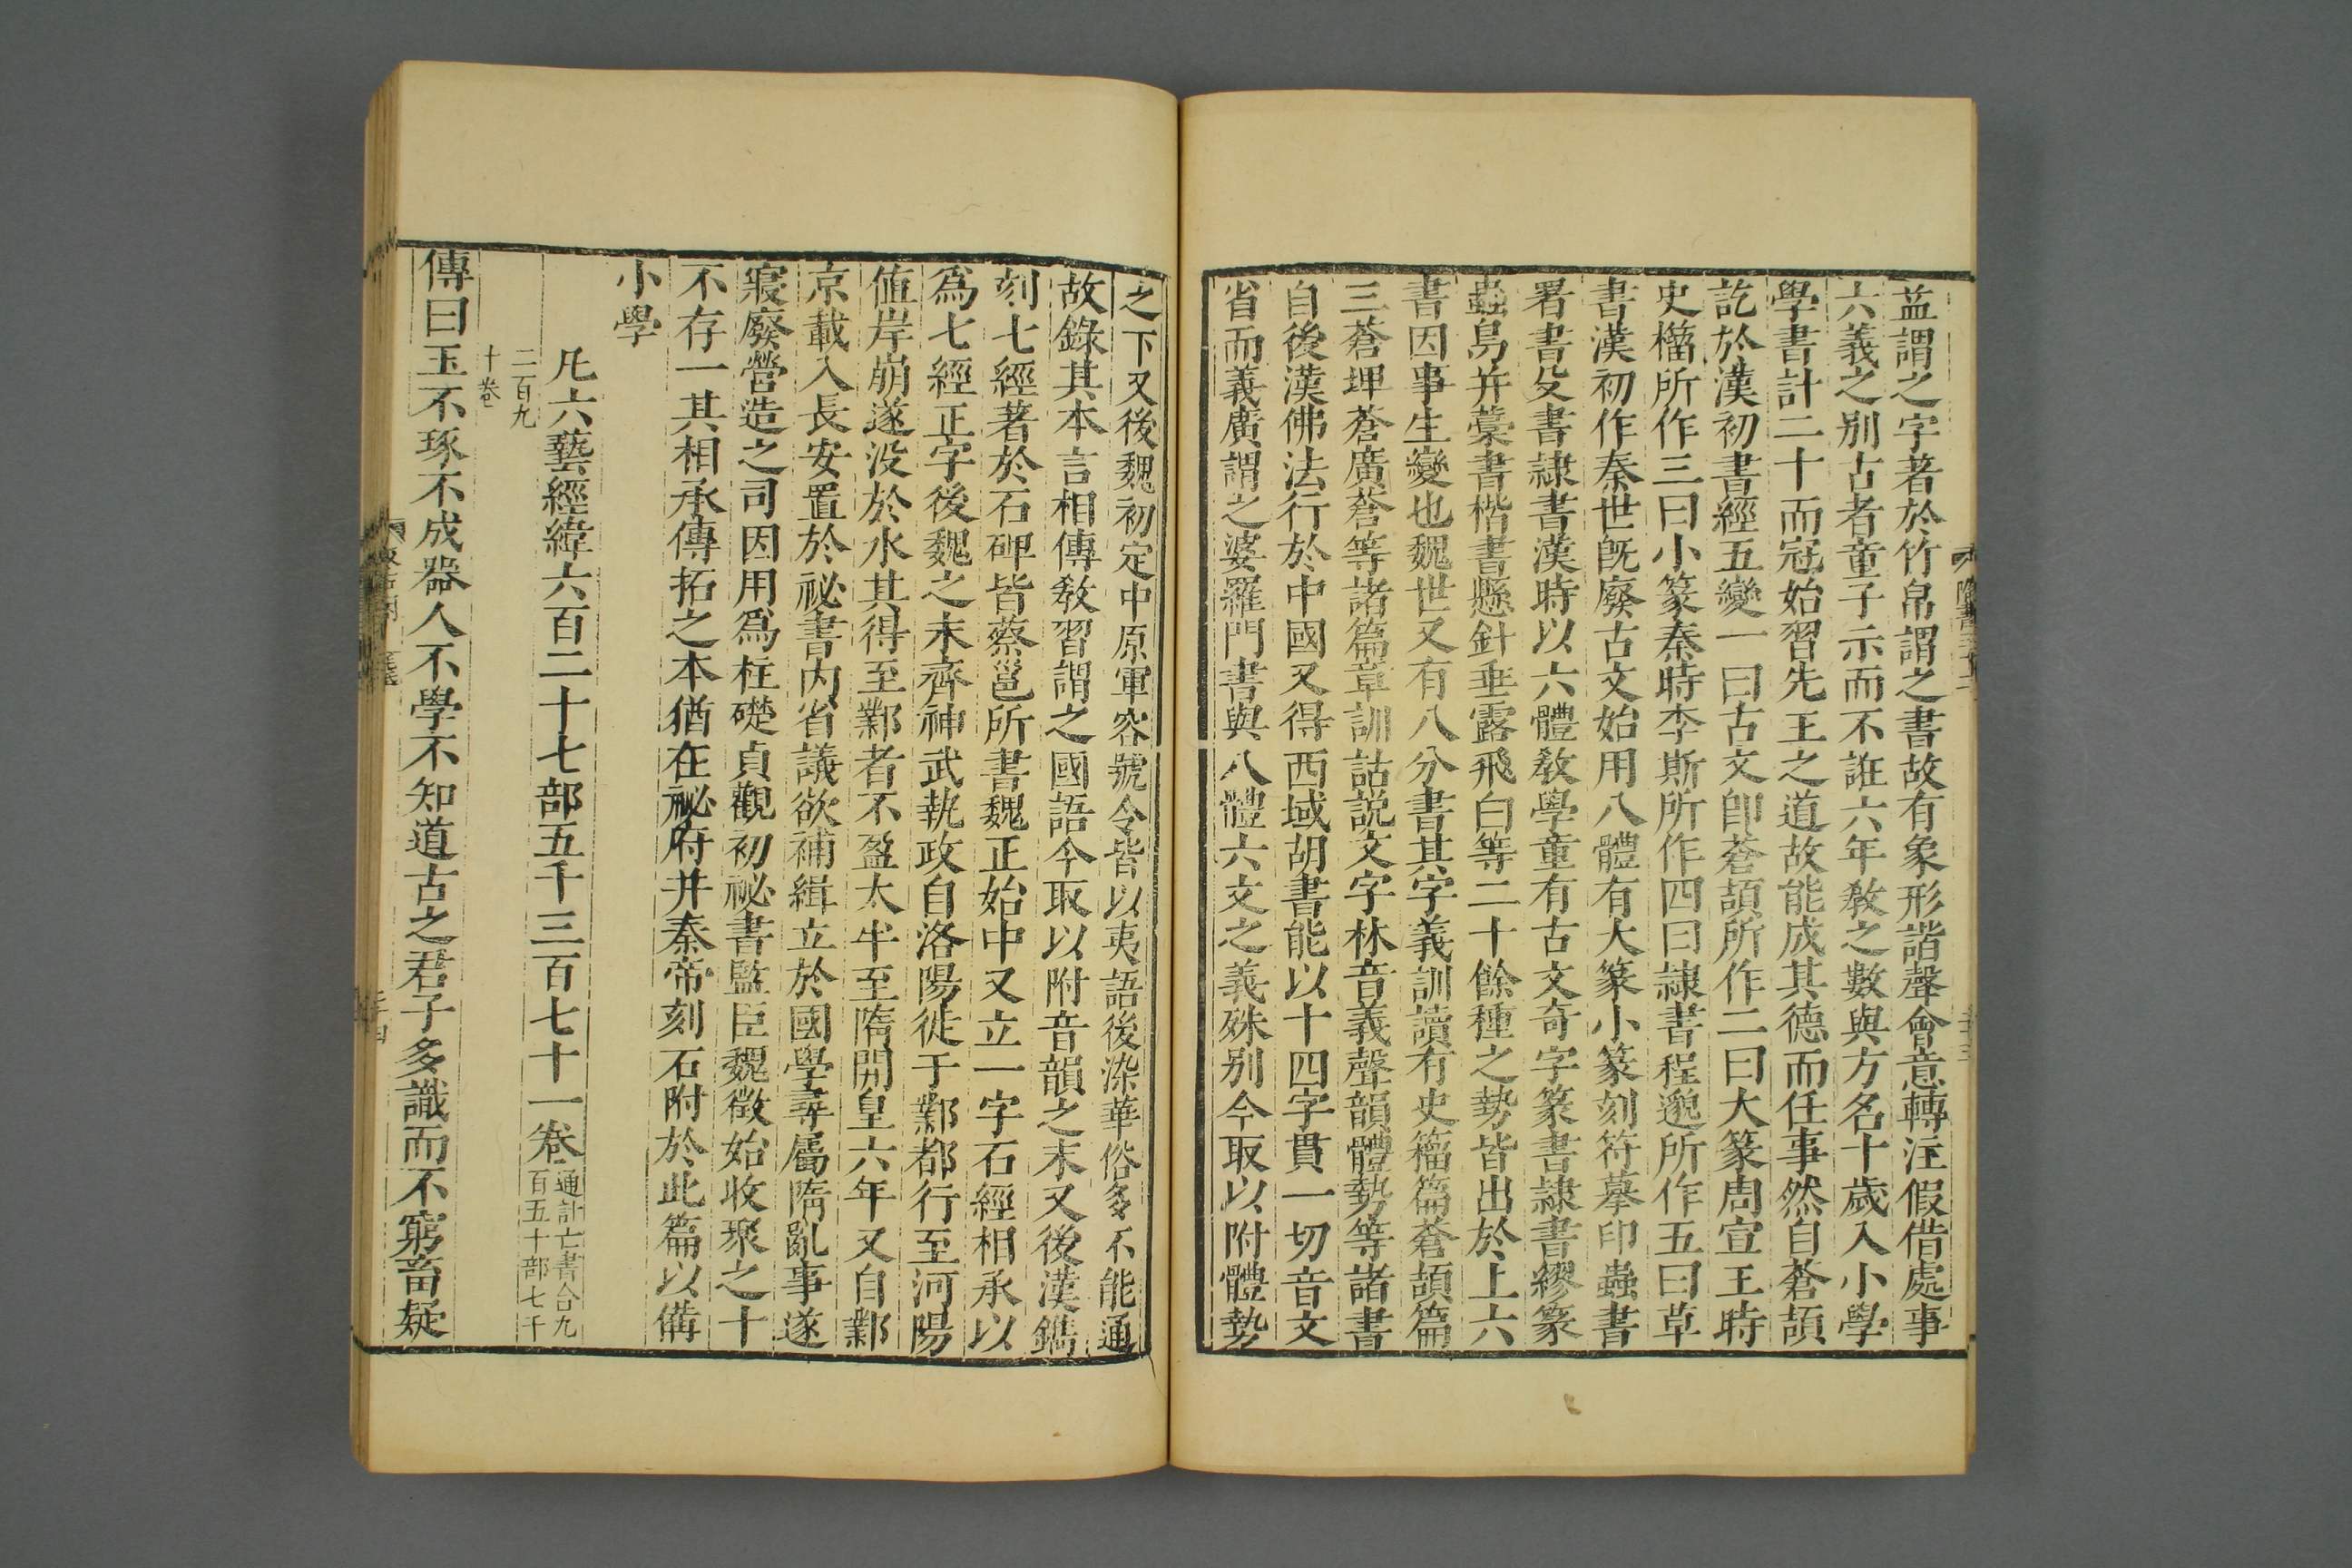 葢謂之字著於竹帛謂之書故有象形諧聲會意轉注假借處事
六義之别古者童子示而不誑六年敎之數與方名十歳入小學
學書計二十而冠始習先王之道故能成其德而任事然自蒼頡
訖於漢初書經五變一曰古文卽蒼頡所作二曰大篆周宣王時
史籕所作三曰小篆秦時李斯所作四曰隷書程邈所作五曰草
書漢初作秦世旣廢古文始用八體有大篆小篆刻符摹印蟲書
署書殳書隷書漢時以六體敎學童有古文奇字篆書隷書繆篆
蟲鳥并藁書楷書懸針垂露飛白等二十餘種之勢皆出於上六
書因事生變也魏世又有八分書其字義訓讀有史籕篇蒼頡篇
三蒼埤蒼廣蒼等諸篇章訓詁說文字林音義聲韻體勢等諸書
自後漢佛法行於中國又得西域胡書能以十四字貫一切音文
省而義廣謂之婆羅門書與八體六文之義殊别今取以附體勢
之下又後魏初定中原軍容號令皆以夷語後染華俗多不能通
故錄其本言相傳敎習謂之國語今取以附音韻之末又後漢鐫
刻七經著於石碑皆蔡邕所書魏正始中又立一字石經相承以
爲七經正字後魏之末齊神武執政自洛陽徙于鄴都行至河陽
值岸崩遂没於水其得至鄴者不盈太半至隋開皇六年又自鄴
京載入長安置於祕書内省議欲補緝立於國學尋屬隋亂事遂
寢廢營造之司因用爲柱礎貞觀初祕書監臣魏徵始收聚之十
不存一其相承傳拓之本猶在祕府并秦帝刻石附於此篇以備
小學
凡六藝經緯六百二十七部五千三百七十一卷通計亡書合九百五十部七千
二百九十卷
傳曰玉不琢不成器人不學不知道古之君子多識而不窮畜疑